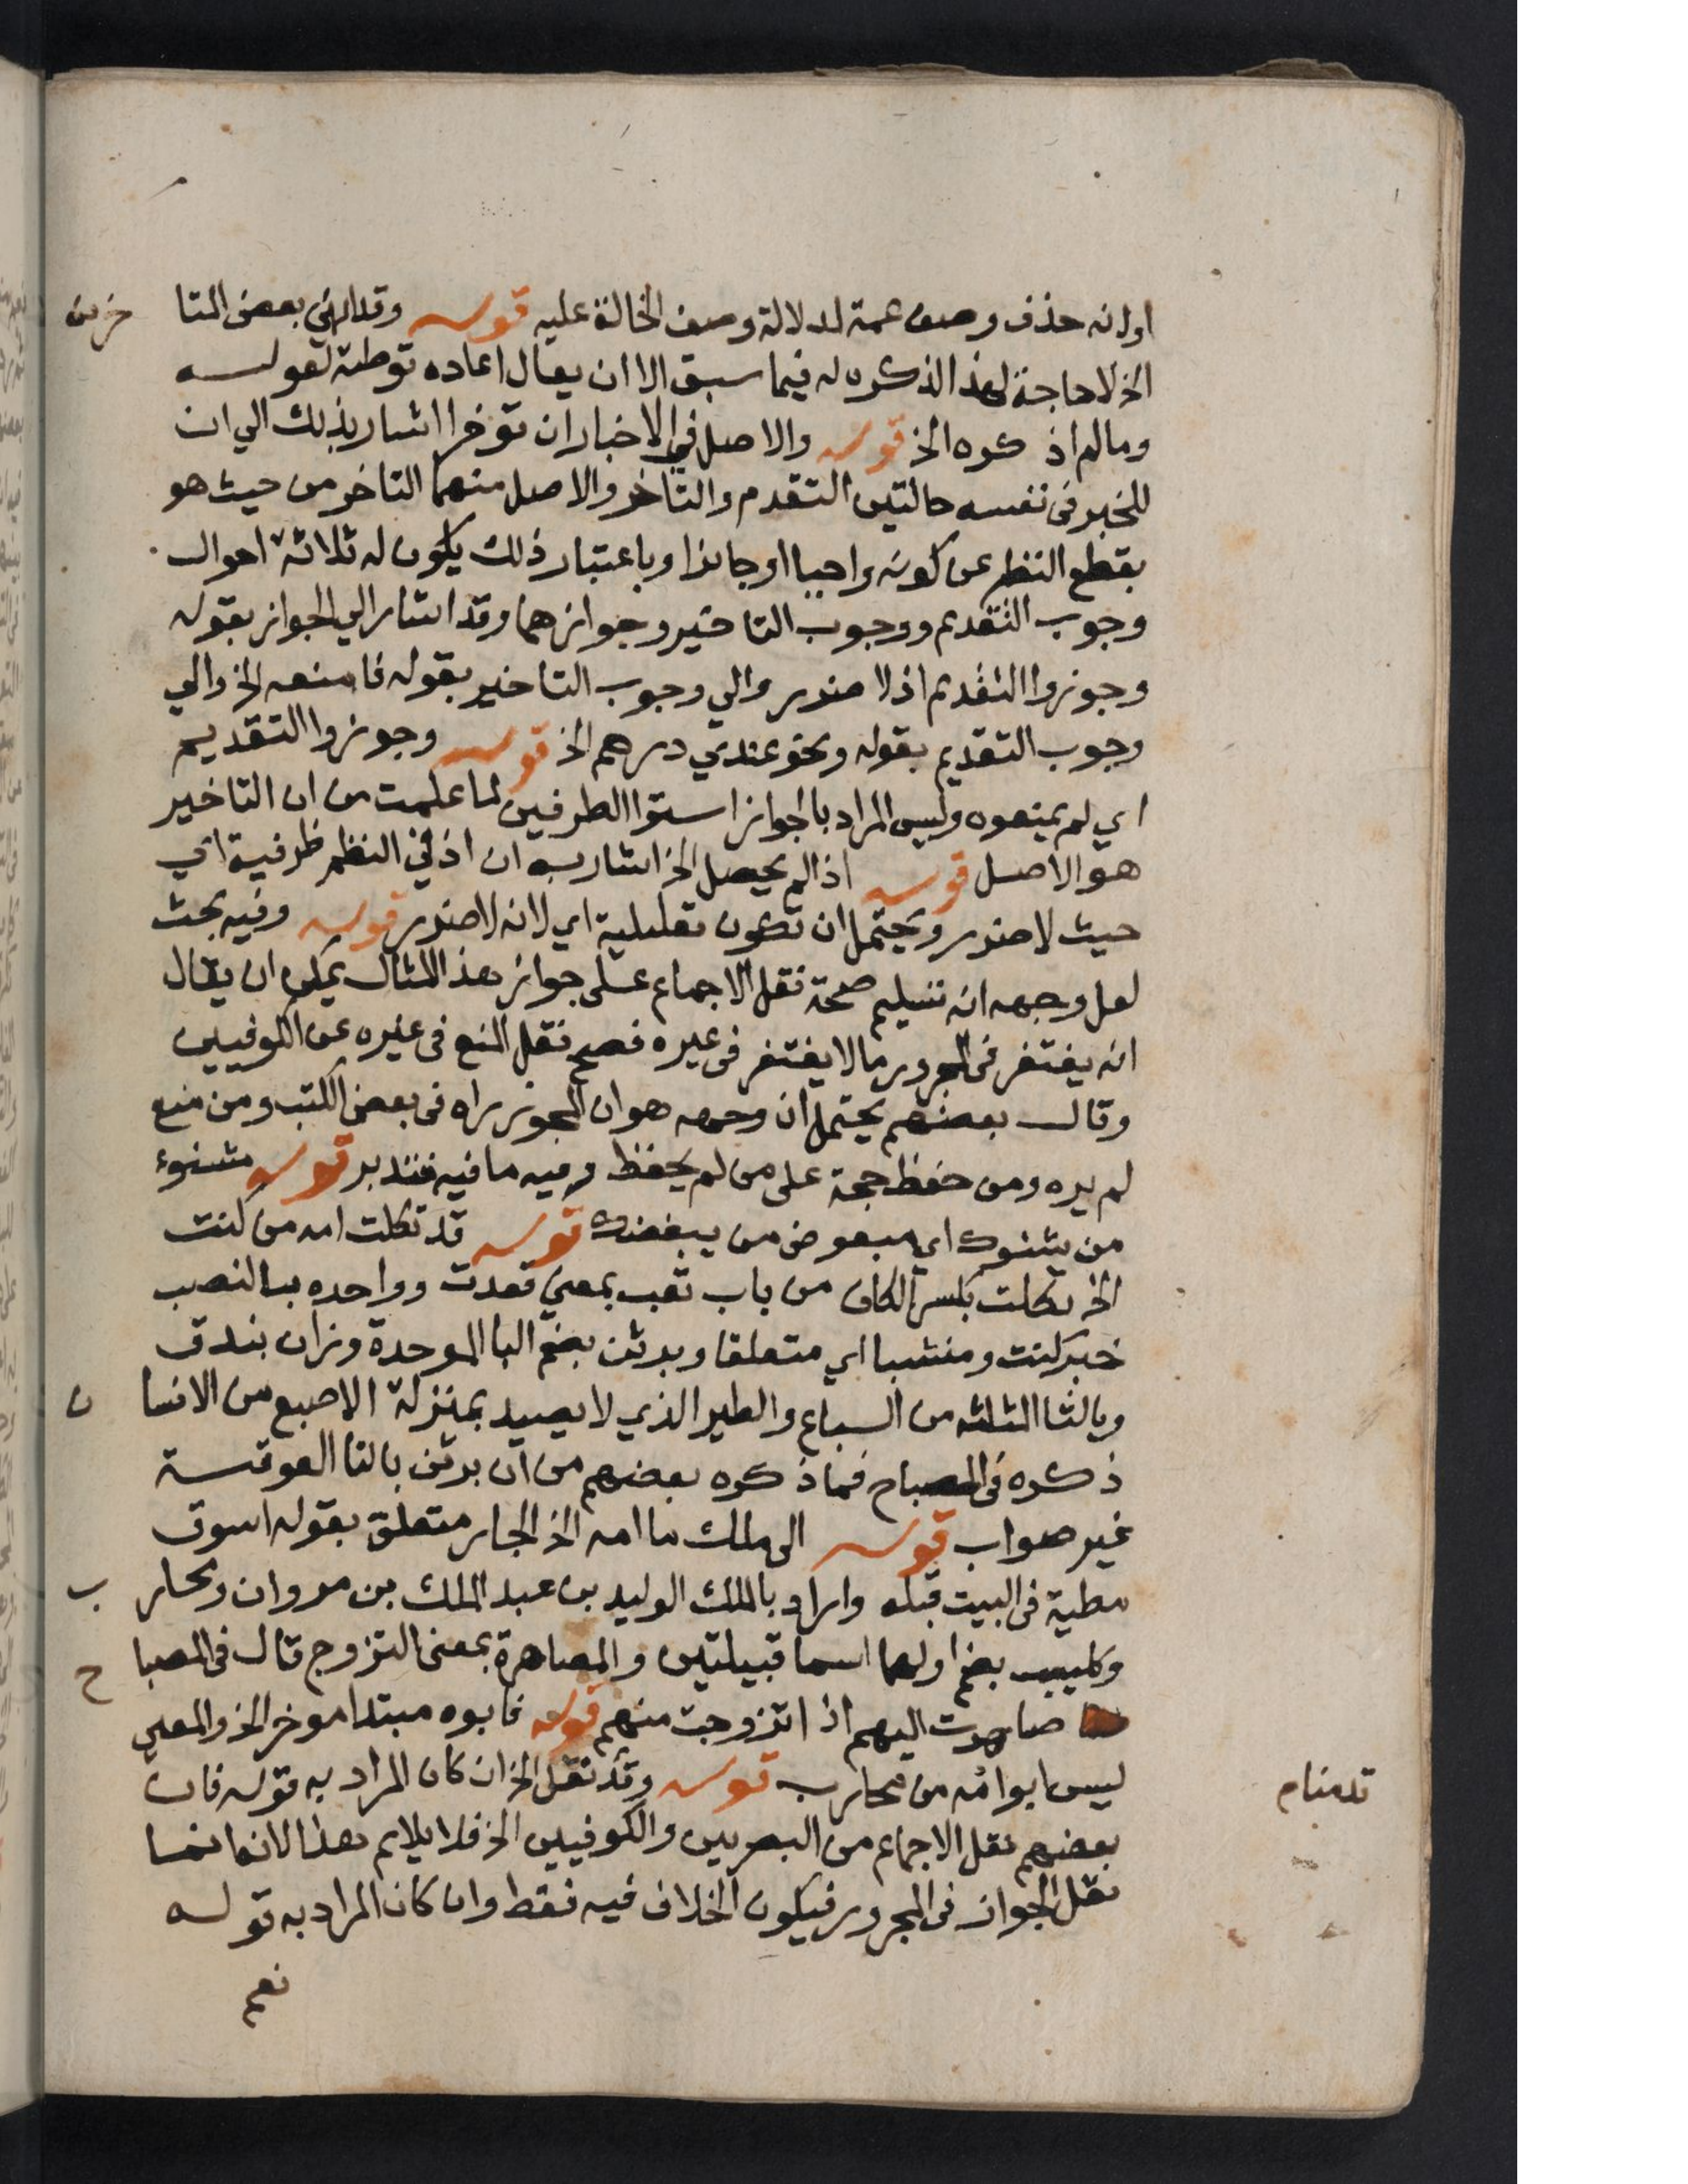 او انه حذف وصف عمة لدلالة وصف الخالة عليه قوله وقد انهي بعض المتا خرين
الخ لا حاجة لهذا لذكره له فيما سبق الا ان يقال اعاده توطئة لقوله
ومالم اذكره الخ قوله والاصل في الاخبار ان توخرا اشار بذلك الي ان
للخبر في نفسه حالتين التقدم والتاخر والاصل منهما التاخر من حيث هو
بقطع النظر عن كونه واجبا او جائزا وباعتبار ذلك يكون له ثلاثة احوال
وجوب التقديم ووجوب التاخير وجوازهما وقد اشار الي الجواز بقوله
وجوزوا التقديم اذ لا ضرر والي وجوب التاخير بقوله فامنعه الخ والي
وجوب التقديم بقوله ونحو عندي درهم الخ قوله وجوزوا التقديم
اي لم يمنعوه وليس المراد بالجواز استوا الطرفين لما علمت من ان التاخير
هو الاصل قوله اذ الم يحصل الخ اشار به ان اذ في النظم ظرفية اي
حيث لا ضرر ويحتمل ان تكون تعليلية اي لانه لا ضرر قوله وفيه بحث
لعل وجهه انه تسليم صحة نقل الاجماع على جواز هذا المثال يمكن ان يقال
انه يغتفر في المجرور ما لا يغتفر في غيره فصح نقل المنع في غيره عن الكوفيين
وقال بعضهم يحتمل ان وجهه هو ان المجوز راه في بعض الكتب ومن منع
لم يره ومن حفظ حجة على من لم يحفظ وفيه ما فيه فتدبر قوله مشنوء
من يشنوك اي مبغوض من يبغضك قوله قد ثكلت امه من كنت
الخ ثكلت بكسر الكاف من باب تعب بمعني فقدت وواحده بالنصب
خبر كنت ومنتشبا اي متعلقا وبرثن بضم البا الموحدة وزان بندق
وبالثا المثلثه من السباع والطير الذي لا يصيد بمنزلة الاصبع من الانسا ن
ذكره في المصباح فما ذكره بعضهم من ان برتن بالتا الفوقية
غير صواب قوله الى ملك ما امه الخ الجار متعلق بقوله اسوق
مطية في البيت قبله واراد بالملك الوليد بن عبد الملك بن مروان ومحار ب
وكليب بضم اولهما اسما قبيلتين والمصاهرة بمعنى التزوج قال في المصبا ح
صاهرت اليهم اذا تزوجت منهم قوله فابوه مبتدا موخر الخ والمعني
ليس ابوامه من محارب قوله وقد نقل الخ ان كان المراد به قوله فان
قدمنام
بعضهم نقل الاجماع من البصريين والكوفيين الخ فلا يلايم هذا لانه انما
نقل الجواز في المجرور فيكون الخلاف فيه فقط وان كان المراد به قوله
نعم